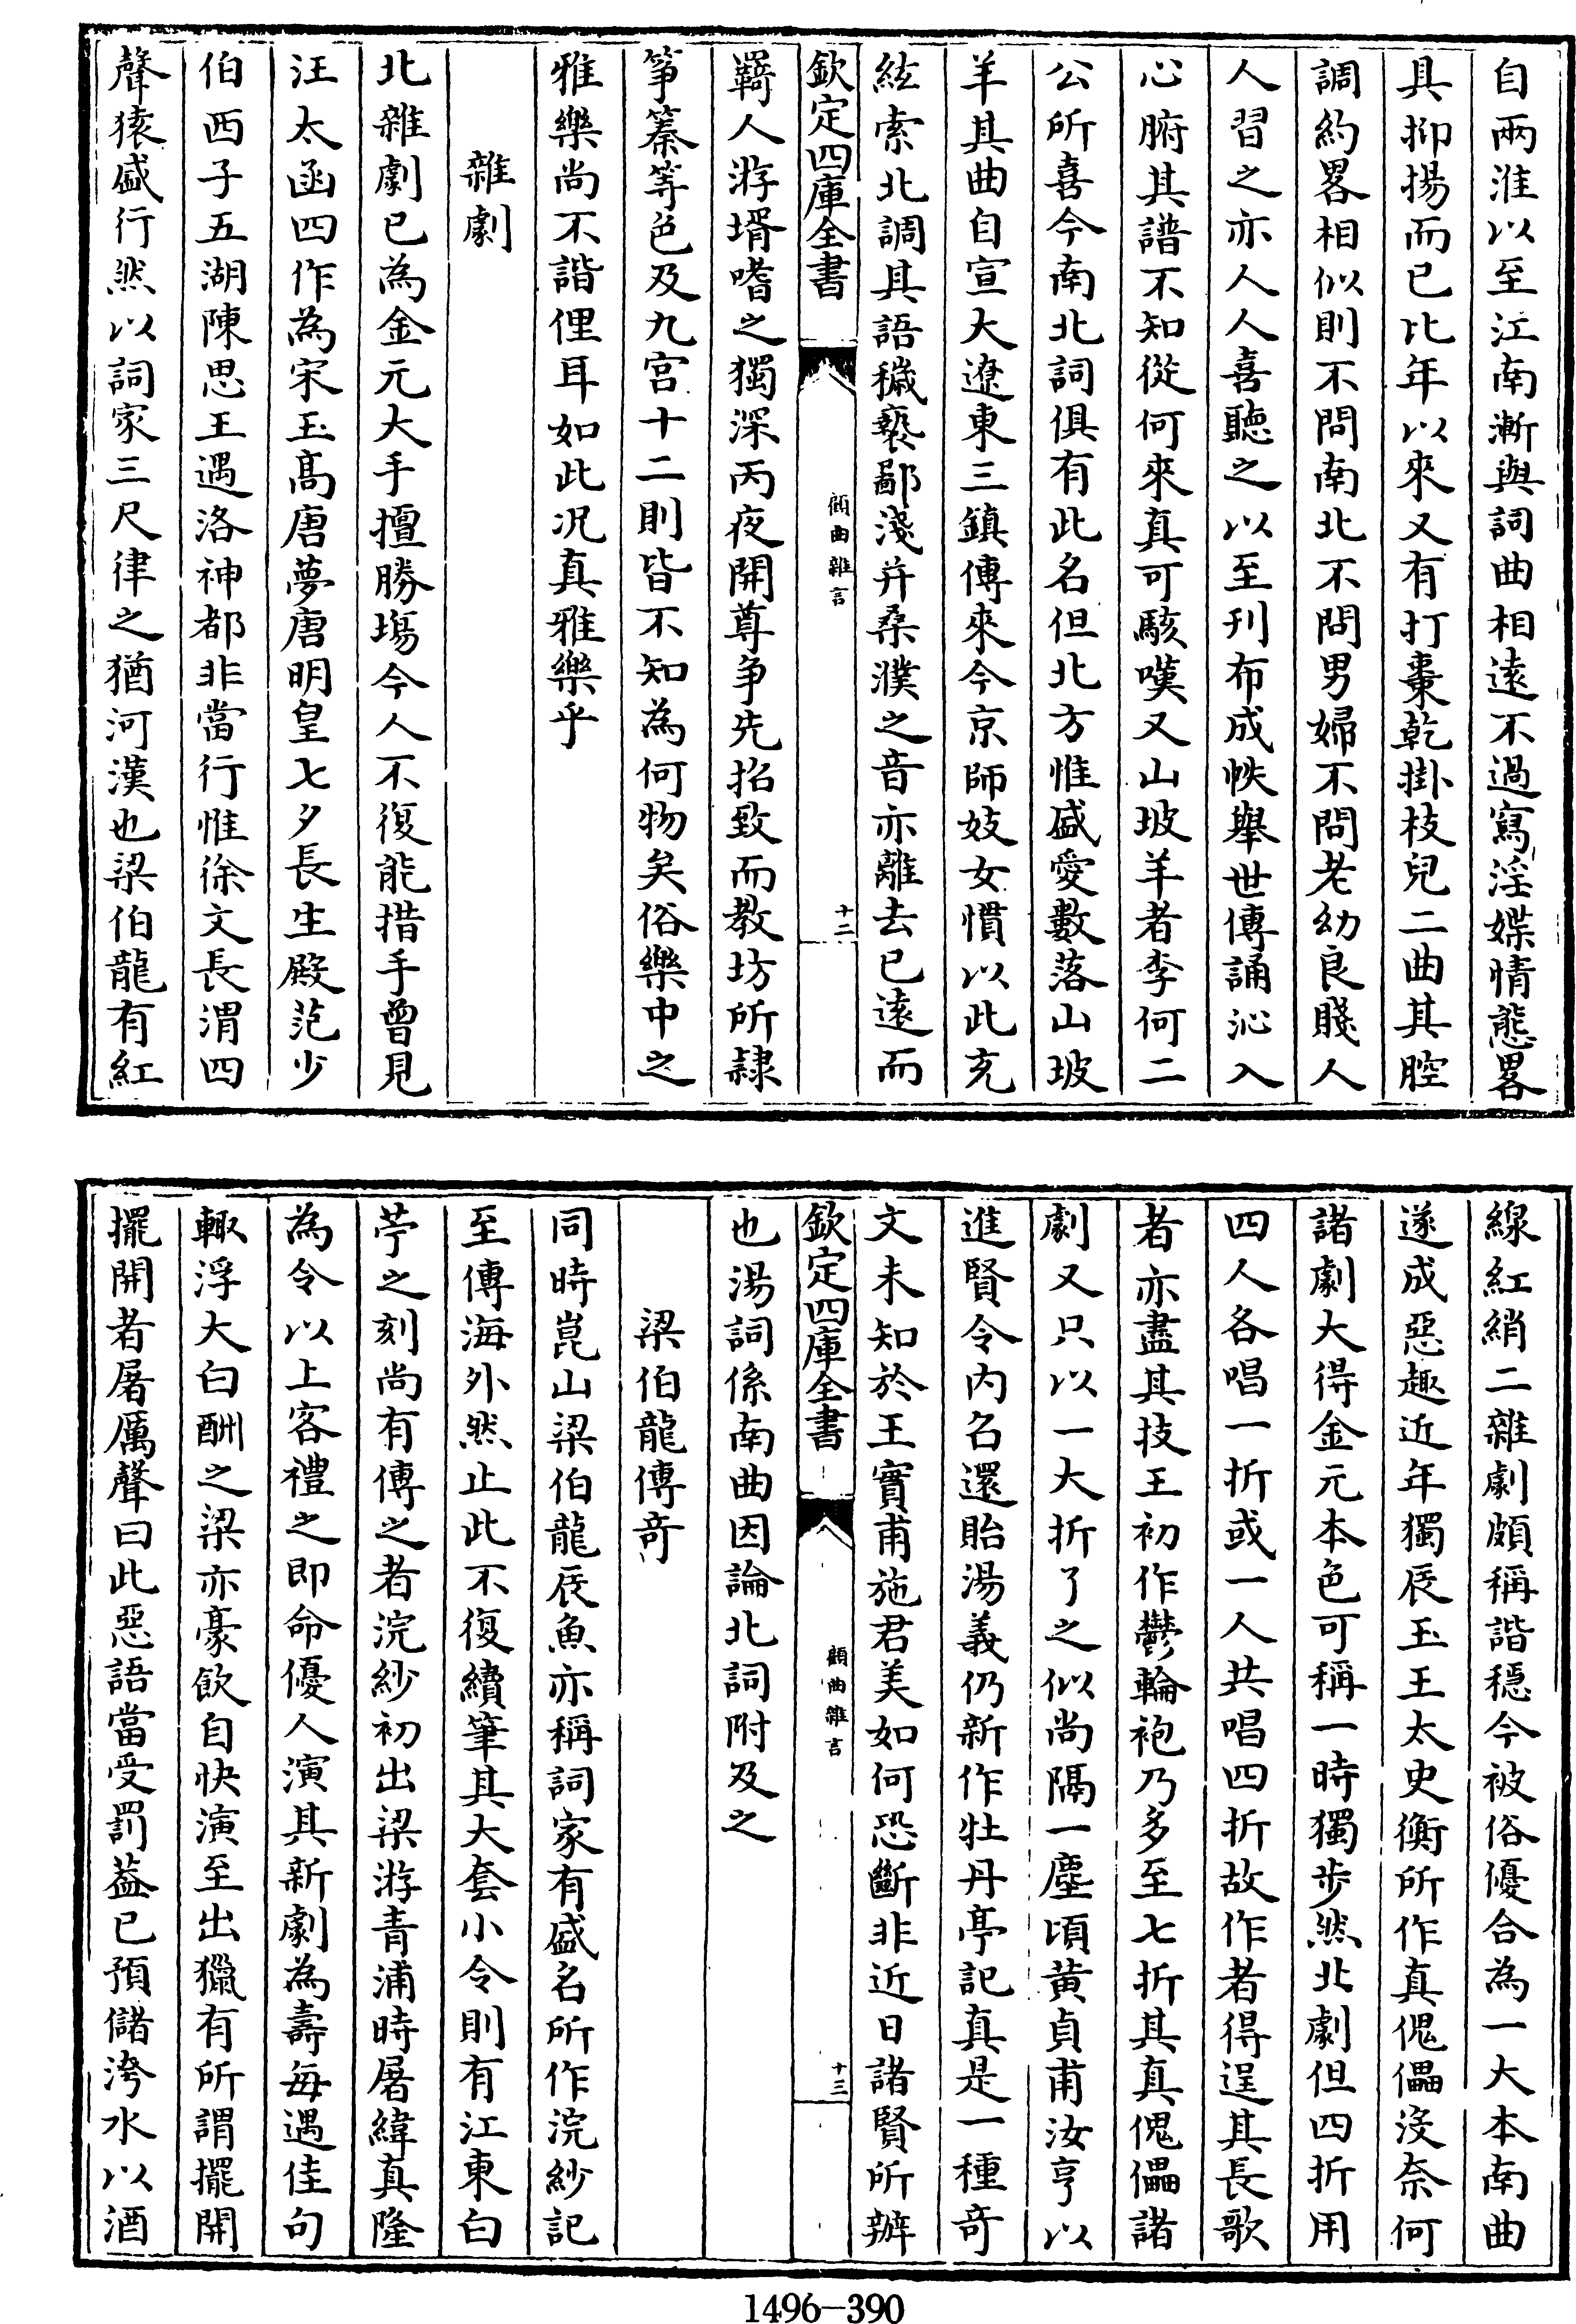 自兩淮以至江南漸與詞曲相遠不過寫淫媟情態畧
具抑揚而已比年以來又有打棗乾掛枝兒二曲其腔
調約畧相似則不問南北不問男婦不問老幼良賤人
人習之亦人人喜聽之以至刊布成帙舉世傳誦沁入
心腑其譜不知從何來真可駭嘆又山坡羊者李何二
公所喜今南北詞俱有此名但北方惟盛愛數落山坡
羊其曲自宣大遼東三鎮傳來今京師妓女慣以此充
絃索北調其語穢褻鄙淺并桑濮之音亦離去已遠而
欽定四庫全書
顧曲雜言
十二
羇人游壻嗜之獨深丙夜開尊争先招致而教坊所隷
筝𥱧等色及九宫十二則皆不知為何物矣俗樂中之
雅樂尚不諧俚耳如此况真雅樂乎
雜劇
北雜劇已為金元大手擅勝塲今人不復能措手曾見
汪太函四作為宋玉高唐夢唐明皇七夕長生殿范少
伯西子五湖陳思王遇洛神都非當行惟徐文長渭四
聲猿盛行然以詞家三尺律之猶河漢也梁伯龍有紅
線紅綃二雜劇頗稱諧穏今被俗優合為一大本南曲
遂成惡趣近年獨辰玉王太史衡所作真傀儡沒奈何
諸劇大得金元本色可稱一時獨步然北劇但四折用
四人各唱一折或一人共唱四折故作者得逞其長歌
者亦盡其技王初作鬱輪袍乃多至七折其真傀儡諸
劇又只以一大折了之似尚隔一塵頃黄貞甫汝亨以
進賢令内名還貽湯義仍新作牡丹亭記真是一種奇
文未知於王實甫施君美如何恐斷非近日諸賢所辦
欽定四庫全書
顧曲雜言
十三
也湯詞係南曲因論北詞附及之
梁伯龍傳奇
同時崑山梁伯龍辰魚亦稱詞家有盛名所作浣紗記
至傳海外然止此不復續筆其大套小令則有江東白
苧之刻尚有傳之者浣紗初出梁游青浦時屠緯真隆
為令以上客禮之即命優人演其新劇為壽每遇佳句
輙浮大白酬之梁亦豪飲自快演至出獵有所謂擺開
擺開者屠厲聲曰此惡語當受罰葢已預儲洿水以酒
1496-390